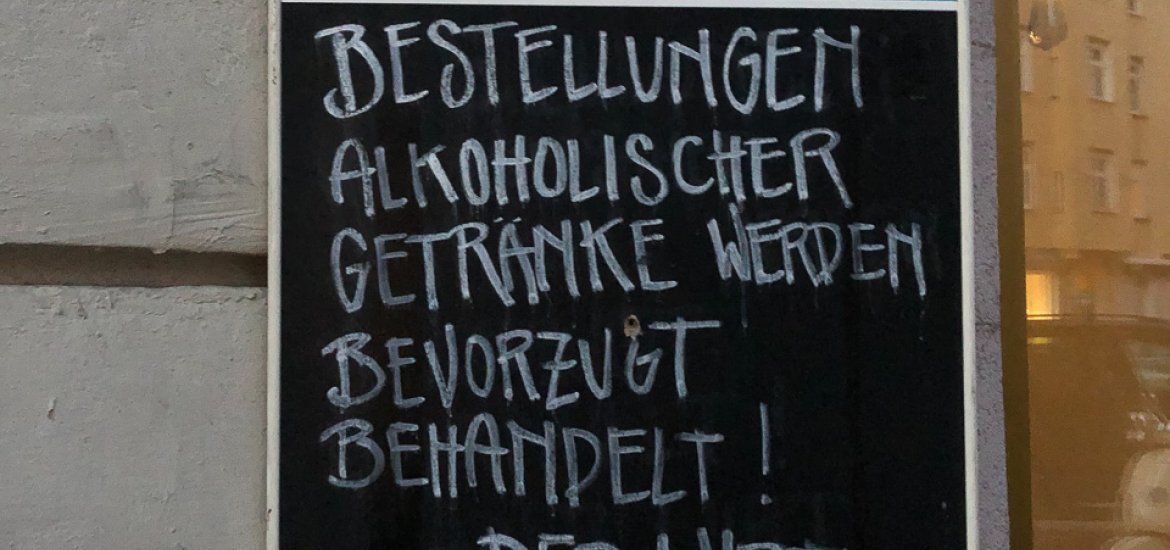 BESTELLUNGEN
ALKOHOLISCHER
GETRÄNKE WERDEN
BEVORZUGT
BEHANDELT!
DER